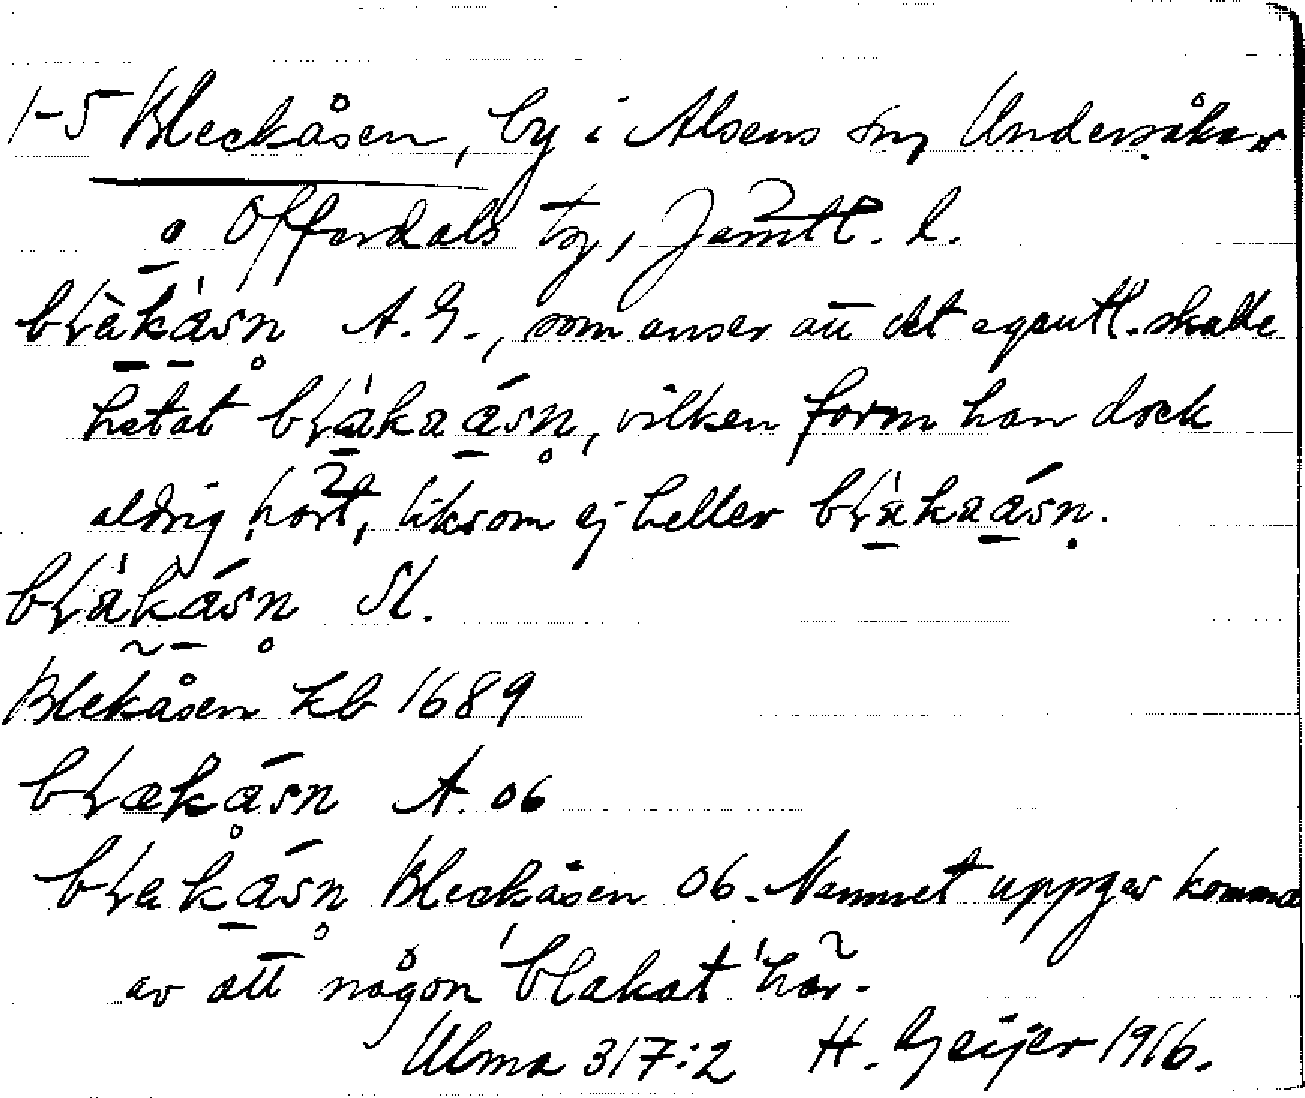 1-5 Bleckåsen, by i Alsens sn, Undersåkers
o Offerdals tg, Jämtl. l.
blä̀kåsn̥ A. G., som anser att det egentl. skulle
hetat blä̀kaåsn̥, vilken form han dock
aldrig hört, liksom ej heller blä̀kaåsn̥.
blä̀kåsn̥ Sl.
Blekåsen kb 1689
blækåsn A. 06
blekåsn̥ Bleckåsen 06. Namnet uppges komma
av att någon 'blakat' här.
Ulma 317:2 H. Geijer 1916.